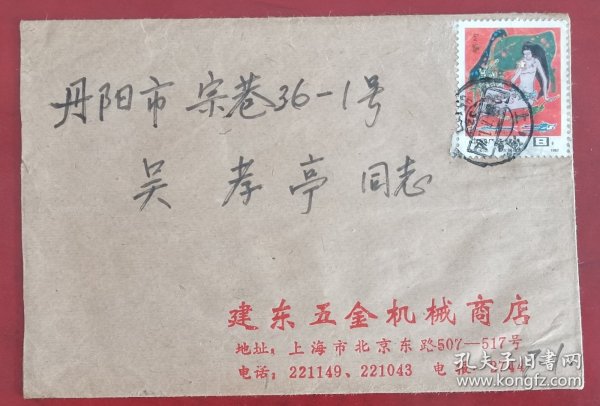 丹阳市 宗巷36-1号
吴孝亭 同志
建东五金机械商店
地址：上海市北京东路507—517号
电话：221149、221043 电报：2744
孔夫子旧书网
www.kongfz.com